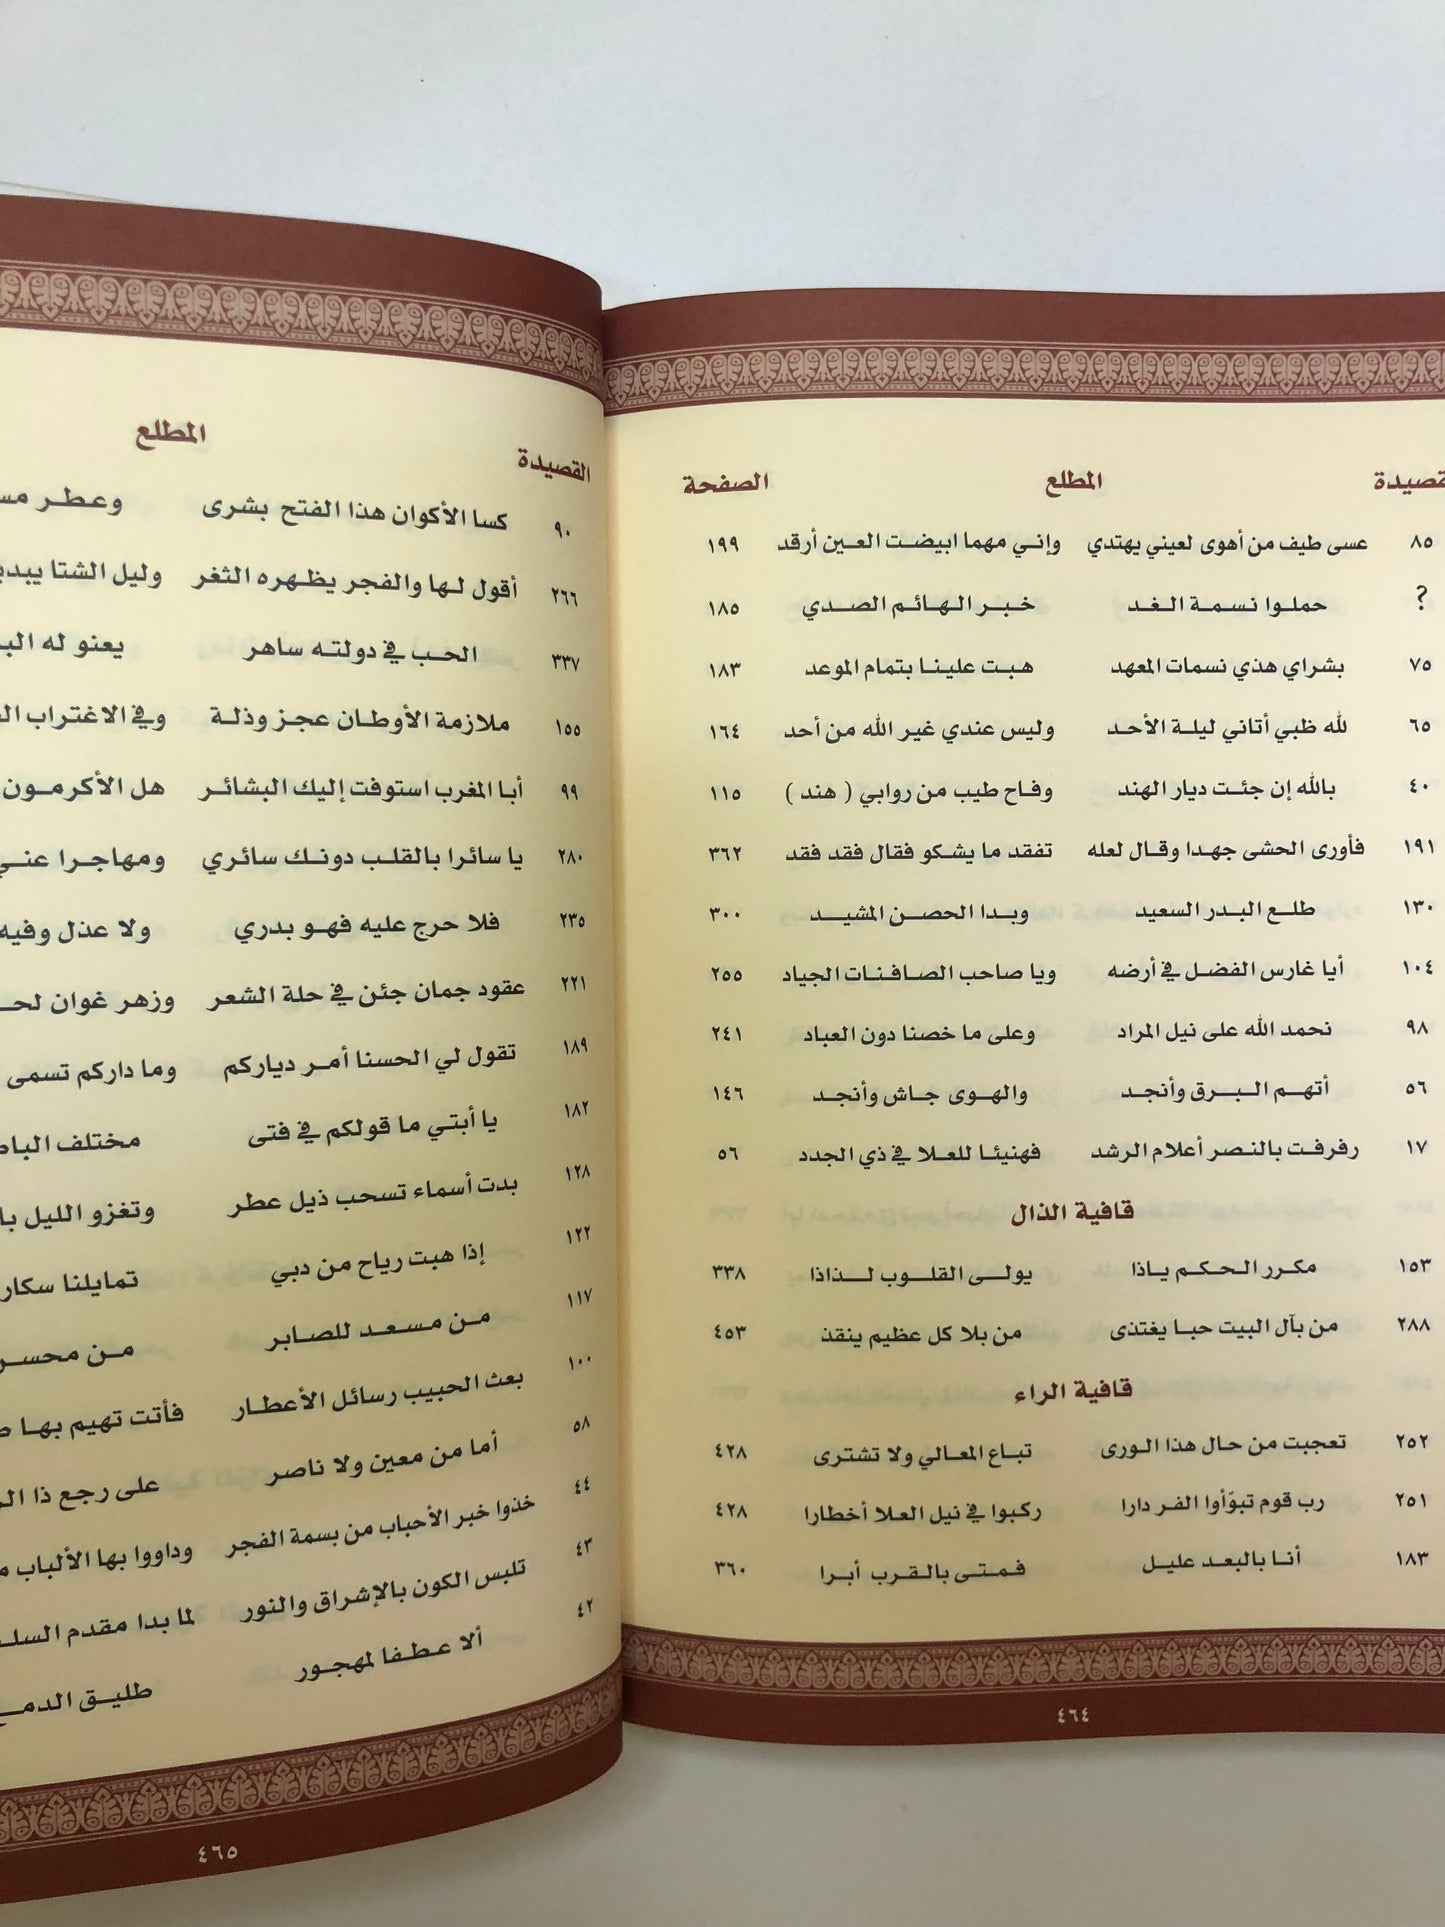 القصيدة المطلع الصفحة
٨٥ عسى طيف من أهوى لعيني يهتدي وإني مهما ابيضت العين أرقد ١٩٩
? حملوا نسمة الغد خبر الهائم الصدي ١٨٥
٧٥ بشراي هذي نسمات المعهد هبت علينا بتمام الموعد ١٨٣
٦٥ لله ظبي أتاني ليلة الأحد وليس عندي غير الله من أحد ١٦٤
٤٠ بالله إن جئت ديار الهند وفاح طيب من روابي ( هند ) ١١٥
١٩١ فأورى الحشى جهدا وقال لعله تفقد ما يشكو فقال فقد فقد ٣٦٢
١٣٠ طلع البدر السعيد وبدا الحصن المشيد ٣٠٠
١٠٤ أيا غارس الفضل في أرضه ويا صاحب الصافنات الجياد ٢٥٥
٩٨ نحمد الله على نيل المراد وعلى ما خصنا دون العباد ٢٤١
٥٦ أتهم البرق وأنجد والهوى جاش وأنجد ١٤٦
١٧ رفرفت بالنصر أعلام الرشد فهنيئا للعلا في ذي الجدد ٥٦
قافية الذال
١٥٣ مكرر الحكم ياذا يولى القلوب لذاذا ٣٣٨
٢٨٨ من بآل البيت حبا يغتذى من بلا كل عظيم ينقذ ٤٥٣
قافية الراء
٢٥٢ تعجبت من حال هذا الورى تباع المعالي ولا تشترى ٤٢٨
٢٥١ رب قوم تبوّأوا الفر دارا ركبوا في نيل العلا أخطارا ٤٢٨
١٨٣ أنا بالبعد عليل فمتى بالقرب أبرا ٣٦٠
٤٦٤
القصيدة المطلع
٩٠ كسا الأكوان هذا الفتح بشرى وعطر
٢٦٦ أقول لها والفجر يظهره الثغر وليل الشتا
٣٣٧ الحب في دولته ساهر يعنو له
١٥٥ ملازمة الأوطان عجز وذلة وفي الاغتراب
٩٩ أبا المغرب استوفت إليك البشائر هل الأكرمون
٢٨٠ يا سائرا بالقلب دونك سائري ومهاجرا عني
٢٣٥ فلا حرج عليه فهو بدري ولا عذل وفيه
٢٢١ عقود جمان جئن في حلة الشعر وزهر غوان
١٨٩ تقول لي الحسنا أمر دياركم وما داركم تسمى
١٨٢ يا أبتي ما قولكم في فتى مختلف
١٢٨ بدت أسماء تسحب ذيل عطر وتغزو الليل
١٢٢ إذا هبت رياح من دبي تمايلنا
١١٧ من مسعد للصابر من
١٠٠ بعث الحبيب رسائل الأعطار فأتت تهيم بها
٥٨ أما من معين ولا ناصر على رجع ذا
٤٤ خذوا خبر الأحباب من بسمة الفجر وداووا بها الألباب
٤٣ تلبس الكون بالإشراق والنور لما بدا مقدم
٤٢ ألا عطفا لمهجور طليق
٤٦٥